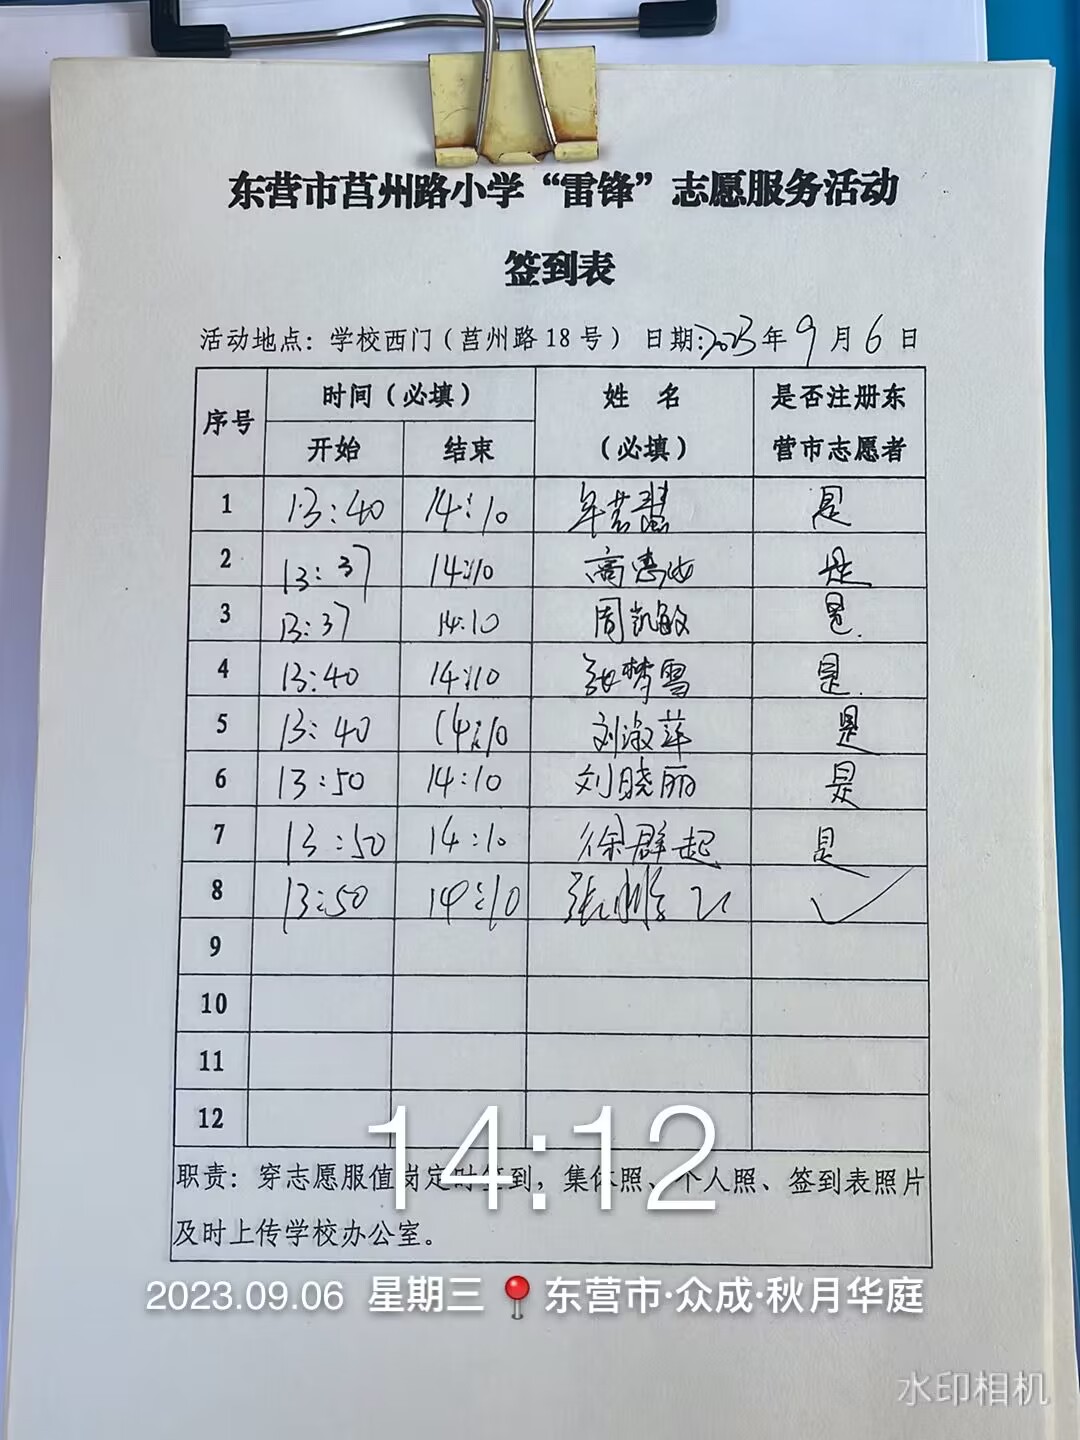 东营市莒州路小学“雷锋”志愿服务活动
签到表
活动地点：学校西门（莒州路18号） 日期:2023年9月6日
序号 时间（必填） 姓 名 是否注册东
开始 结束 （必填） 营市志愿者
1 13:40 14:10 牟若慧 是
2 13:37 14:10 高惠 是
3 13:37 14:10 周凯敏 是.
4 13:40 14:10 张梦雪 是.
5 13:40 14:10 刘淑萍 是
6 13:50 14:10 刘晓丽 是
7 13:50 14:10 徐群起 是
8 13:50 14:10 张 ✓
9
10
11
12
14:12
职责：穿志愿服值岗定时签到，集体照、个人照、签到表照片
及时上传学校办公室。
2023.09.06 星期三 东营市·众成·秋月华庭
水印相机